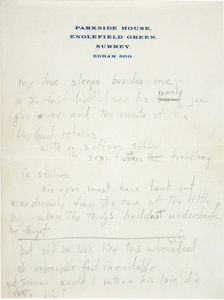 PARKSIDE HOUSE,
ENGLEFIELD GREEN,
SURREY.
EGHAM 800.
my love sleeps besides me —
in the faint light — I see his manly jaw
give away — and the mouth of his
boyhood returns
with a softness softer
trembling
in stillness
his eyes must have look out
wonderously from the cave of the little
boy — when the things had not understand
he forgot
but will he look like this when dead
oh unbearable fact inevitable
yet sooner would I rather his love die